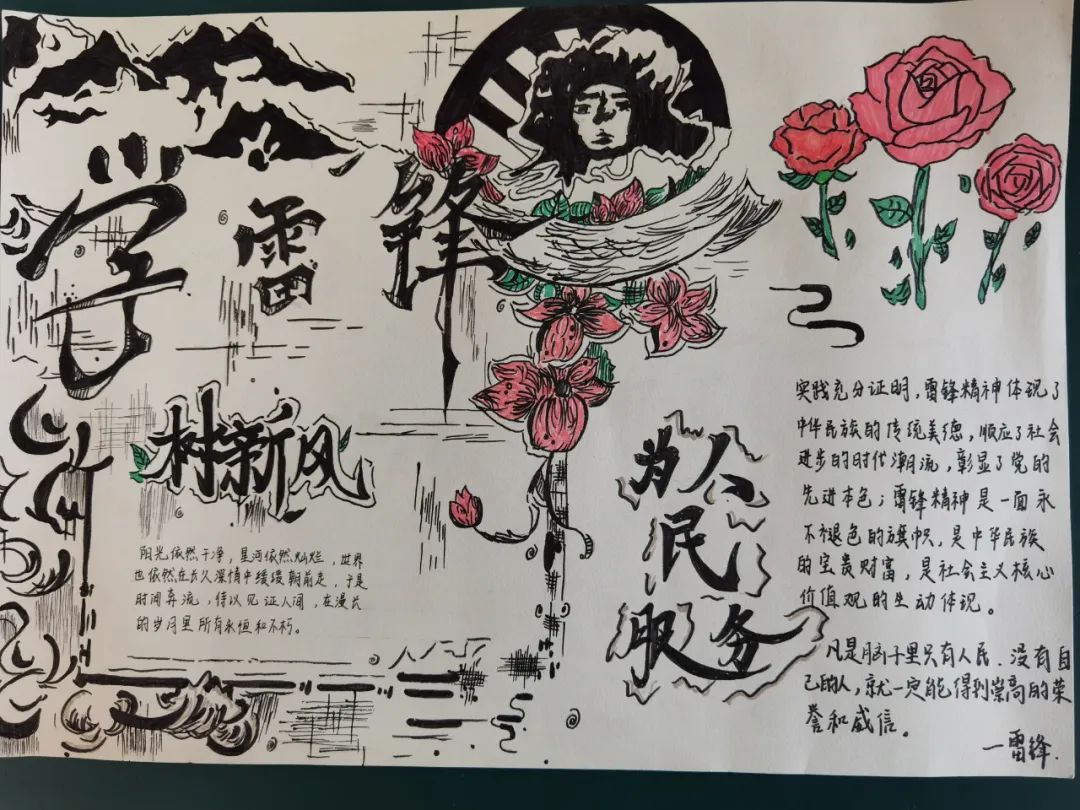 学雷锋
树新风
阳光依然干净，星河依然灿烂，世界
也依然在长久深情中缓缓朝前走，于是
时间奔流，得以见证人间，在漫长
的岁月里所有永恒和不朽。
为人
民
服务
实践充分证明，雷锋精神体现了
中华民族的传统美德，顺应了社会
进步的时代潮流，彰显了党的
先进本色；雷锋精神是一面永
不褪色的旗帜，是中华民族
的宝贵财富，是社会主义核心
价值观的生动体现。
凡是脑子里只有人民．没有自
己的人，就一定能得到崇高的荣
誉和威信。
—雷锋．